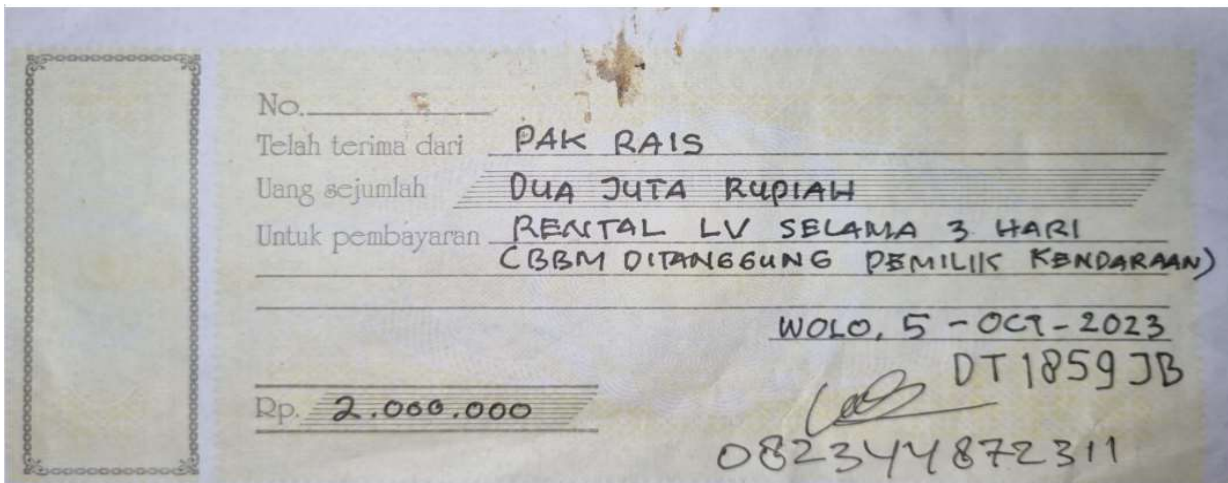 No.
Telah terima dari PAK RAIS
Uang sejumlah DUA JUTA RUPIAH
Untuk pembayaran RENTAL LV SELAMA 3 HARI
(BBM DITANGGUNG PEMILIK KENDARAAN)
WOLO, 5 - OCT - 2023
DT 1859 JB
Rp. 2.000.000
082344872311